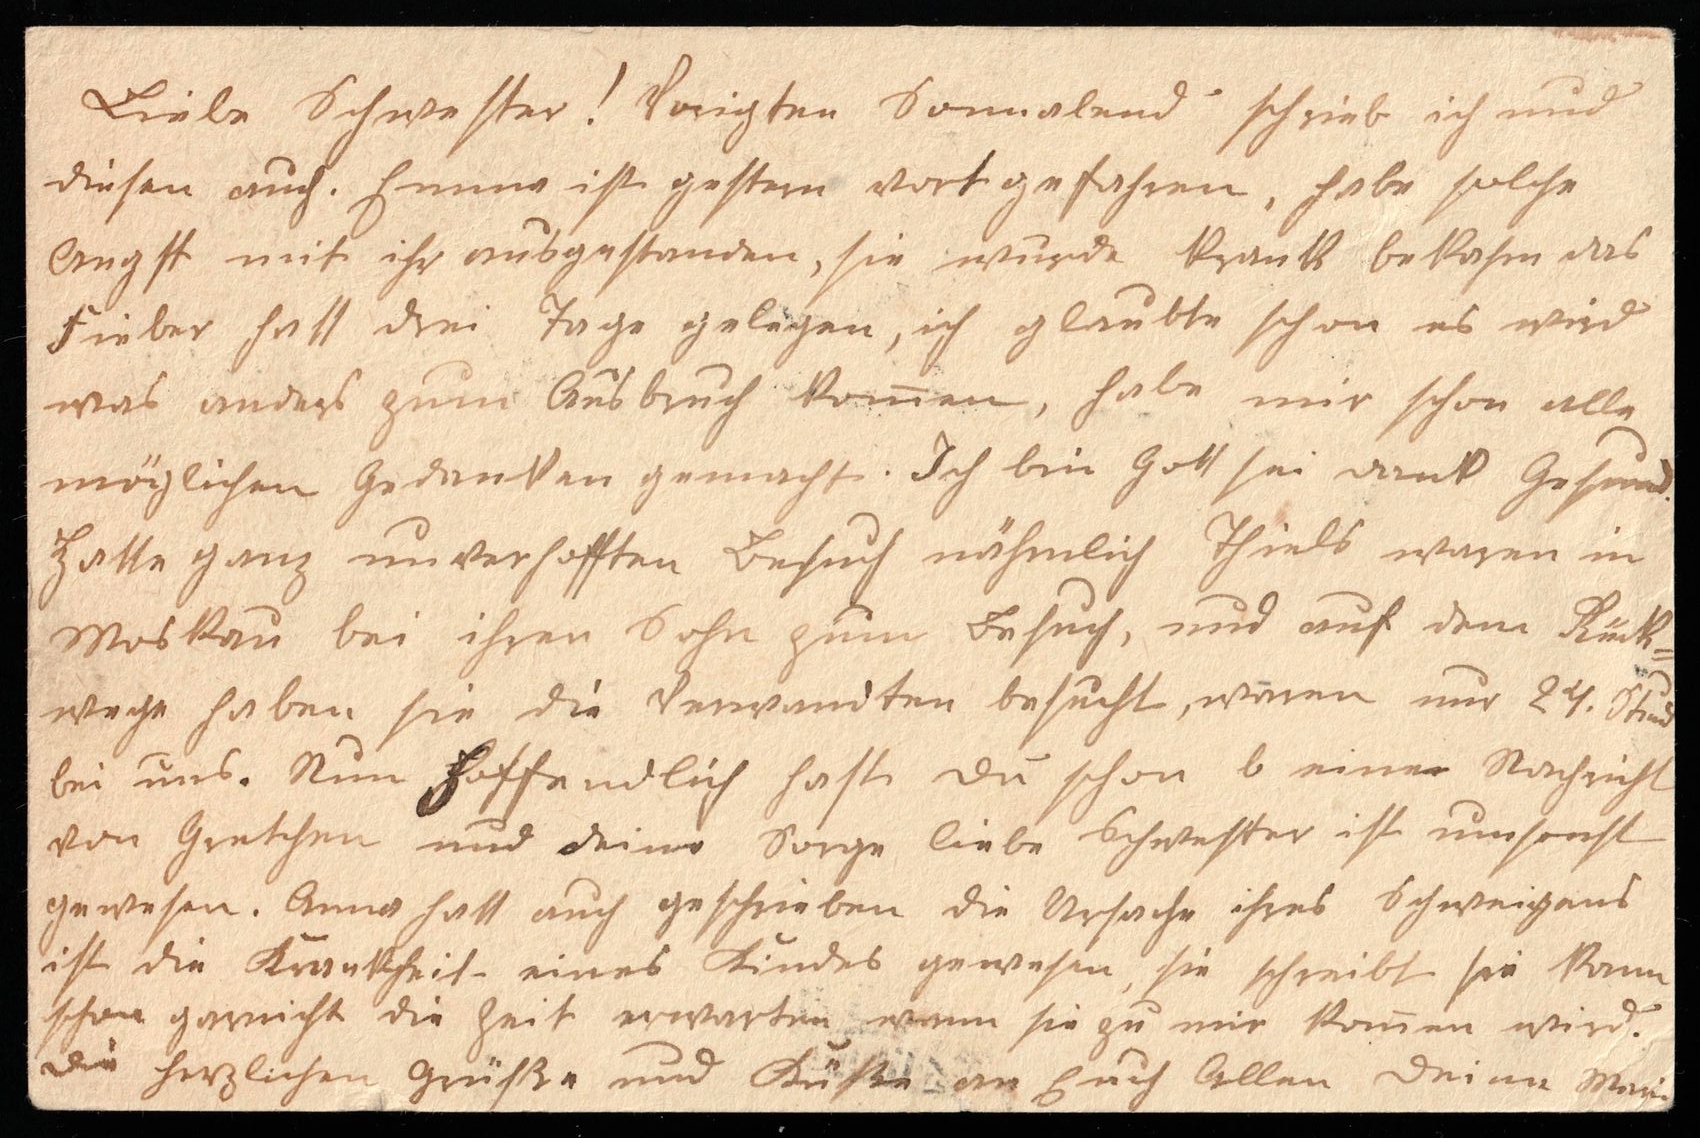 Liebe Schwester! Vorigten Sonnabend schrieb ich und
diesen auch. Emma ist gestern vortgefahren, habe solche
Angst mit ihr ausgestanden, sie wurde krank bekahm das
Fieber hatt drei Tage gelegen, ich glaubte schon es wird
was anders zum Ausbruch kom̅en, habe mir schon alle
möglichen Gedanken gemacht. Ich bin Gott sei dank Gesund.
Hatte ganz unverhofften Besuch nähmlich Thiels waren in
Moskau bei ihren Sohn zum Besuch, und auf dem Rück=
wege haben sie die Verwandten besucht, waren nur 24. Stund
bei uns. Nun Hoffendlich hast Du schon eine Nachricht
von Gretchen und deine Sorge liebe Schwester ist umsonst
gewesen. Anna hatt auch geschrieben die Ursache ihres Schweigens
ist die Krankheit eines Kindes gewesen, sie schreibt sie kann
schon garnicht die Zeit erwarten wann sie zu mir kom̅en wird.
Die herzlichen Grüße und Küße an Euch Allen Deine